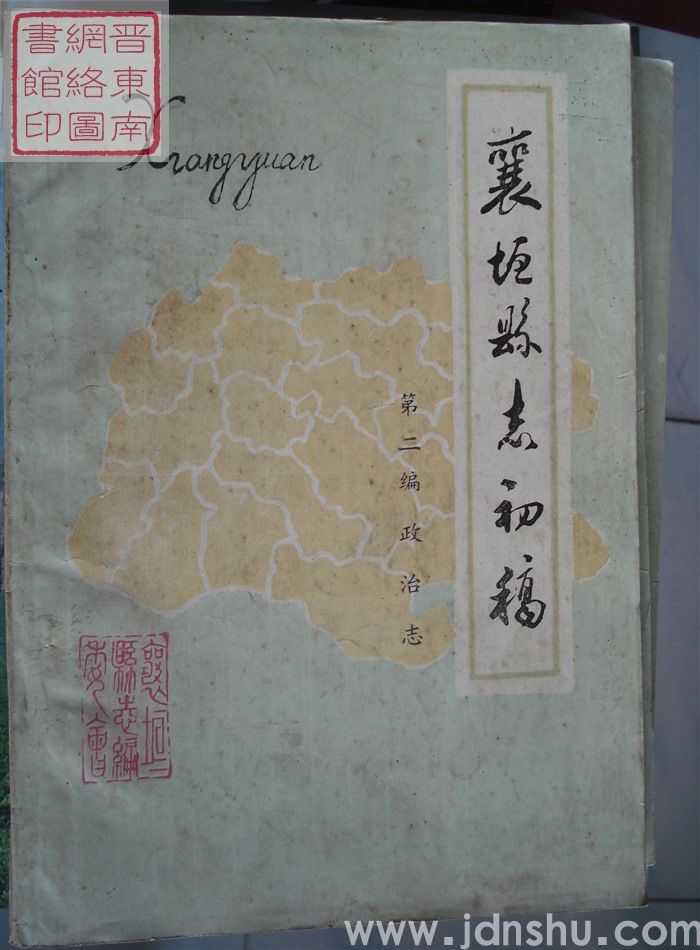 晋東南
網絡圖
書館印
Xiangyuan
襄垣縣志初稿
第二编政治志
襄垣
縣志編
委會
www.jdnshu.com